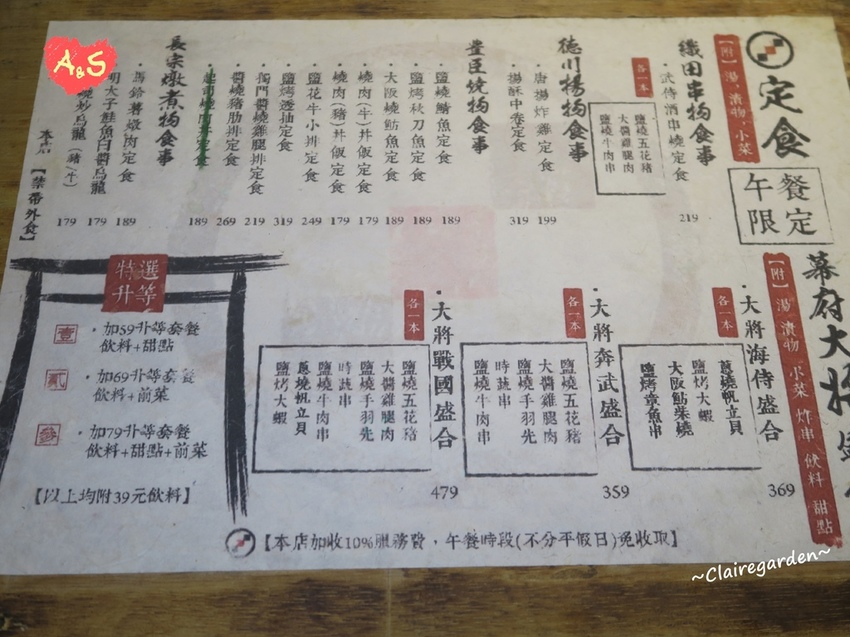 定食
午餐
限定
【附】湯、漬物、小菜
織田串物食事
・武侍酒串燒定食 219
各一本
鹽燒五花豬
大醬雞腿肉
鹽燒牛肉串
德川揚物食事
・唐揚炸雞定食 199
・揚酥中卷定食 319
豊臣燒物食事
・鹽燒鯖魚定食 189
・鹽烤秋刀魚定食 189
・大阪燒魴魚定食 189
・燒肉(牛)丼飯定食 179
・燒肉(豬)丼飯定食 179
・鹽花牛小排定食 249
・鹽烤透抽定食 319
・獨門醬燒雞腿排定食 219
・醬燒豬肋排定食 269
・起司燒肉丼定食 189
長宗燉煮物食事
・馬鈴薯燉肉定食 189
明太子鮭魚白醬烏龍 179
炒烏龍(豬/牛) 179
本店【禁帶外食】
幕府大將
【附】湯 漬物 小菜 炸串 飲料 甜點
・大將海侍盛合 369
各一本
蔥燒帆立貝
鹽烤大蝦
大阪鮎柴燒
鹽烤章魚串
・大將奔武盛合 359
各一本
鹽燒五花豬
大醬雞腿肉
鹽燒手羽先
時蔬串
鹽燒牛肉串
・大將戰國盛合 479
各一本
鹽燒五花豬
大醬雞腿肉
鹽燒手羽先
時蔬串
鹽燒牛肉串
蔥燒帆立貝
鹽烤大蝦
特選
升等
壹 ・加59升等套餐
飲料+甜點
貳 ・加69升等套餐
飲料+前菜
參 ・加79升等套餐
飲料+甜點+前菜
【以上均附39元飲料】
【本店加收10%服務費，午餐時段(不分平假日)免收取】
A&S
~Clairegarden~